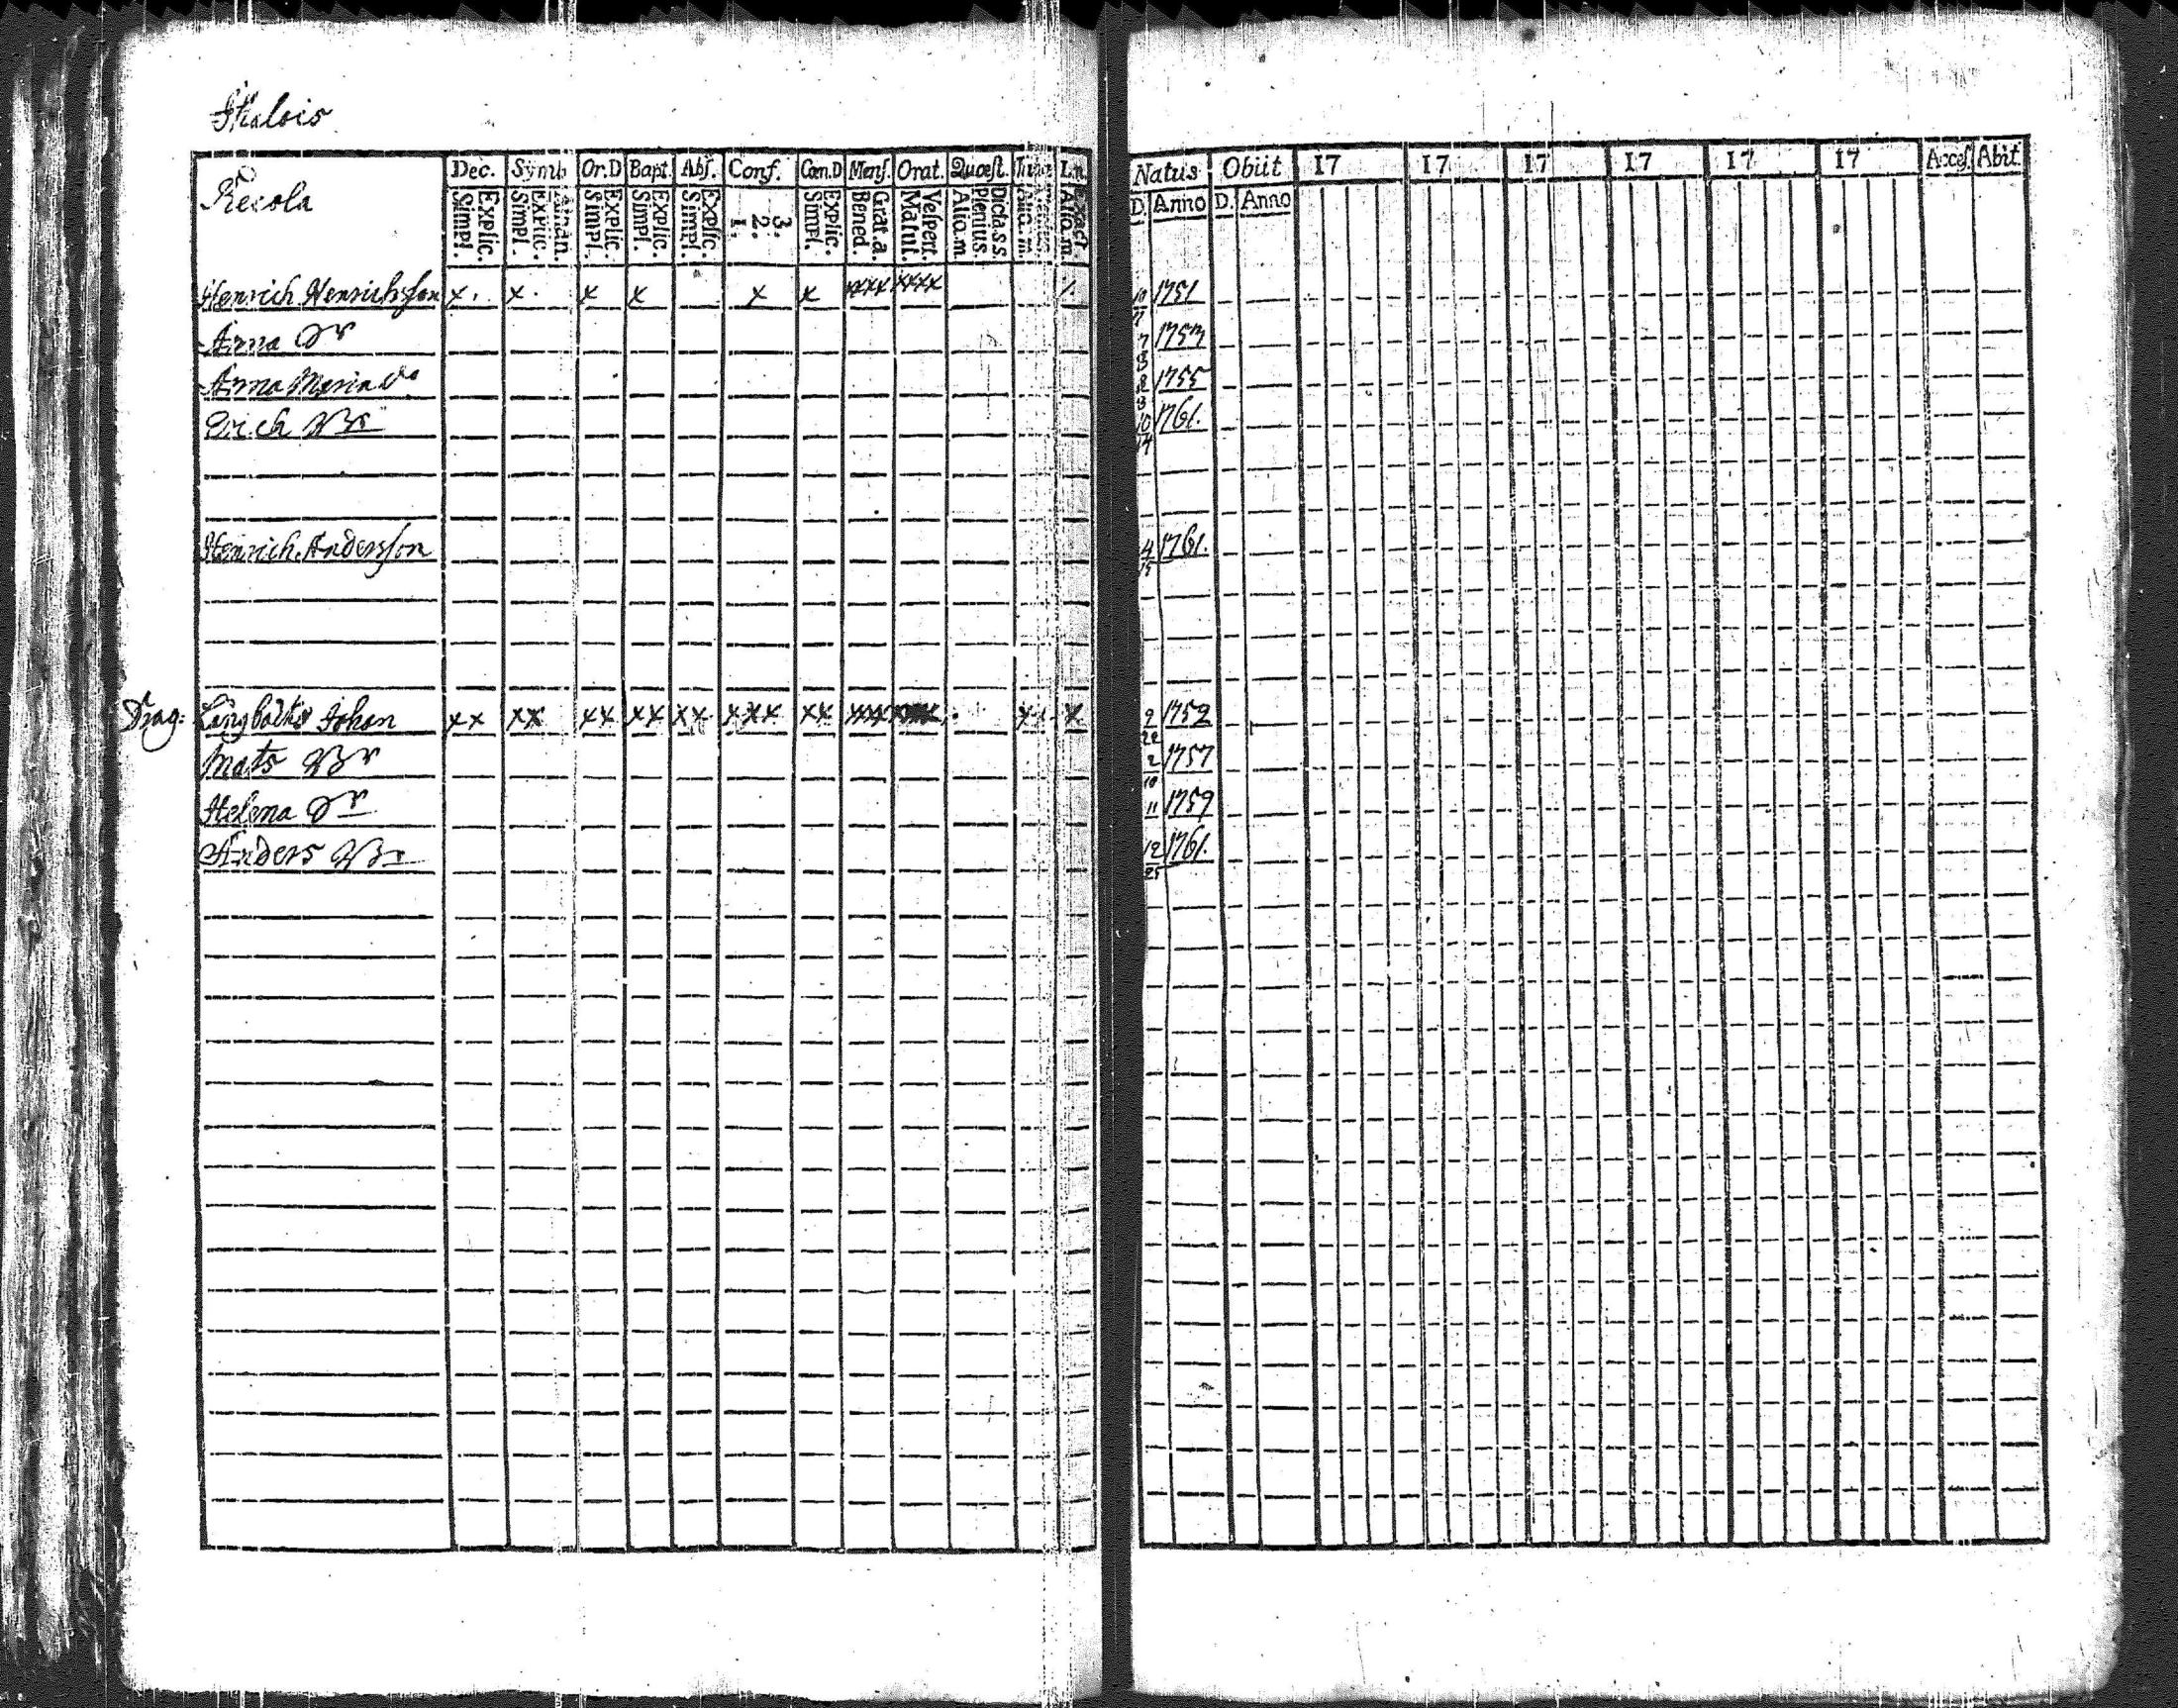 Skalois
Dec. Symb. Or.D Bapt. Abſ. Conf. Cœn.D Menſ. Orat. Quœſt. Natus Obiit 17 17 17 17 17 17 Acceſ. Abit.
Explic. Simpl. Athan. Explic. Simpl. Explic. Simpl. Explic. Simpl. Explic. Simpl. 3. 2. 1. Explic. Simpl. Grat.a. Bened. Veſpert. Matut. Dicta.s.s. Plenius. Aliq.m. exact. Aliq.m. D. Anno D. Anno
Recola
Henrich Henrichsson x. x. x x x x xxxx xxxx / 10 11 1751
Anna Dr 7 5 1753
Anna Maria Do 8 3 1755
Erich Br 10 14 1761.
Henrich Andersson 4 15 1761.
Drag: Långbacka Johan xx xx xx xx xx xxx xx xxxx xxxx xx x 9 22 1752
Mats Br 2 10 1757
Helena Dr 11 1759
Anders Br 12 25 1761.